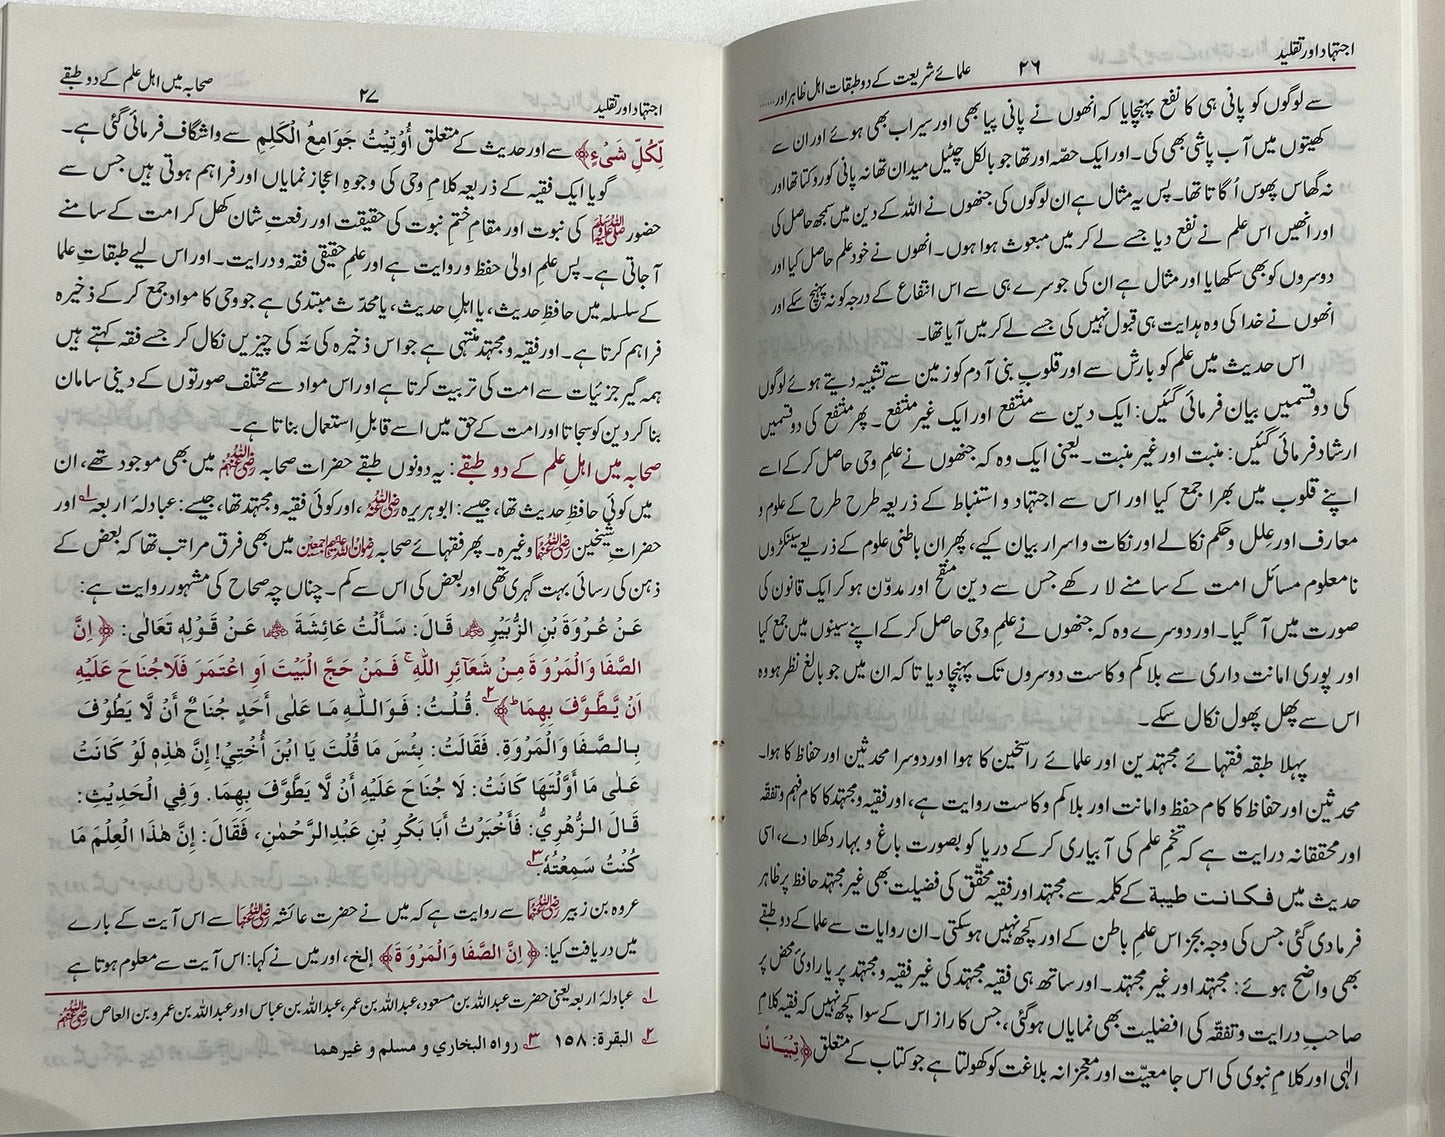 اجتہاد اور تقلید ۲۶ علمائے شریعت کے دو طبقات اہل ظاہر اور......
سے لوگوں کو پانی ہی کا نفع پہنچایا کہ انھوں نے پانی پیا بھی اور سیراب بھی ہوئے اور ان سے
کھیتوں میں آب پاشی بھی کی۔ اور ایک حصّہ اور تھا جو بالکل چٹیل میدان تھا نہ پانی کو روکتا تھا اور
نہ گھاس پھوس اُگاتا تھا۔ پس یہ مثال ہے ان لوگوں کی جنھوں نے اللہ کے دین میں سمجھ حاصل کی
اور انھیں اس علم نے نفع دیا جسے لے کر میں مبعوث ہوا ہوں۔ انھوں نے خود علم حاصل کیا اور
دوسروں کو بھی سکھایا اور مثال ہے ان کی جو سرے ہی سے اس انتفاع کے درجہ کو نہ پہنچ سکے اور
انھوں نے خدا کی وہ ہدایت ہی قبول نہیں کی جسے لے کر میں آیا تھا۔
اس حدیث میں علم کو بارش سے اور قلوبِ بنی آدم کو زمین سے تشبیہ دیتے ہوئے لوگوں
کی دو قسمیں بیان فرمائی گئیں: ایک دین سے منتفع اور ایک غیر منتفع۔ پھر منتفع کی دو قسمیں
ارشاد فرمائی گئیں: منبت اور غیر منبت۔ یعنی ایک وہ کہ جنھوں نے علمِ وحی حاصل کرکے اسے
اپنے قلوب میں بھرا جمع کیا اور اس سے اجتہاد و استنباط کے ذریعہ طرح طرح کے علوم و
معارف اور عِلل و حکم نکالے اور نکات و اسرار بیان کیے، پھر ان باطنی علوم کے ذریعے سینکڑوں
نامعلوم مسائل امت کے سامنے لا رکھے جس سے دین منقّح اور مدوّن ہو کر ایک قانون کی
صورت میں آ گیا۔ اور دوسرے وہ کہ جنھوں نے علمِ وحی حاصل کرکے اپنے سینوں میں جمع کیا
اور پوری امانت داری سے بلاکم و کاست دوسروں تک پہنچا دیا تاکہ ان میں جو بالغ نظر ہو وہ
اس سے پھل پھول نکال سکے۔
پہلا طبقہ فقہائے مجتہدین اور علمائے راسخین کا ہوا اور دوسرا محدثین اور حفاظ کا ہوا۔
محدثین اور حفاظ کا کام حفظ و امانت اور بلاکم و کاست روایت ہے، اور فقیہ و مجتہد کا کام فہم و تفقّہ
اور محققانہ درایت ہے کہ تخمِ علم کی آبیاری کرکے دریا کو بصورت باغ و بہار دکھلا دے، اسی
حدیث میں فکانت طیبة کے کلمہ سے مجتہد اور فقیہ محقّق کی فضیلت بھی غیر مجتہد حافظ پر ظاہر
فرما دی گئی جس کی وجہ بجز اس علمِ باطن کے اور کچھ نہیں ہوسکتی۔ ان روایات سے علما کے دو طبقے
بھی واضح ہوئے: مجتہد اور غیر مجتہد۔ اور ساتھ ہی فقیہ مجتہد کی غیر فقیہ و مجتہد پر یا راویٔ محض پر
صاحبِ درایت و تفقّہ کی افضلیت بھی نمایاں ہوگئی، جس کا راز اس کے سوا کچھ نہیں کہ فقیہ کلامِ
الٰہی اور کلامِ نبوی کی اس جامعیّت اور معجزانہ بلاغت کو کھولتا ہے جو کتاب کے متعلق ﴿تِبْيَانًا
اجتہاد اور تقلید ۲۷ صحابہ میں اہل علم کے دو طبقے
لِّكُلِّ شَيْءٍ﴾ سے اور حدیث کے متعلق أُوْتِيْتُ جَوَامِعُ الْكَلِمِ سے واشگاف فرمائی گئی ہے۔
گویا ایک فقیہ کے ذریعہ کلامِ وحی کی وجوہِ اعجاز نمایاں اور فراہم ہوتی ہیں جس سے
حضور ﷺ کی نبوت اور مقامِ ختمِ نبوت کی حقیقت اور رفعتِ شان کھل کر امت کے سامنے
آ جاتی ہے۔ پس علمِ اولیٰ حفظ و روایت ہے اور علمِ حقیقی فقہ و درایت۔ اور اس لیے طبقاتِ علما
کے سلسلہ میں حافظِ حدیث، یا اہلِ حدیث، یا محدّث مبتدی ہے جو وحی کا مواد جمع کرکے ذخیرہ
فراہم کرتا ہے۔ اور فقیہ و مجتہد منتہی ہے جو اس ذخیرہ کی تہ کی چیزیں نکال کر جسے فقہ کہتے ہیں
ہمہ گیر جزئیات سے امت کی تربیت کرتا ہے اور اس مواد سے مختلف صورتوں کے دینی سامان
بنا کر دین کو سجاتا اور امت کے حق میں اسے قابلِ استعمال بناتا ہے۔
صحابہ میں اہلِ علم کے دو طبقے: یہ دونوں طبقے حضرات صحابہ رضی اللہ عنہم میں بھی موجود تھے، ان
میں کوئی حافظِ حدیث تھا، جیسے: ابوہریرہ رضی اللہ عنہ، اور کوئی فقیہ و مجتہد تھا، جیسے: عبادلۂ اربعہ ۱ اور
حضراتِ شیخین رضی اللہ عنہما وغیرہ۔ پھر فقہائے صحابہ رضوان اللہ علیہم اجمعین میں بھی فرق مراتب تھا کہ بعض کے
ذہن کی رسائی بہت گہری تھی اور بعض کی اس سے کم۔ چناں چہ صحاح کی مشہور روایت ہے:
عَنْ عُرْوَةَ بْنِ الزُّبَيْرِ قَالَ: سَأَلْتُ عَائِشَةَ عَنْ قَوْلِهِ تَعَالٰى: ﴿ اِنَّ
الصَّفَا وَالْمَرْوَةَ مِنْ شَعَآئِرِ اللّٰهِ ۚ فَمَنْ حَجَّ الْبَيْتَ اَوِ اعْتَمَرَ فَلَا جُنَاحَ عَلَيْهِ
اَنْ يَّطَّوَّفَ بِهِمَا ؕ﴾ ۲. قُلْتُ: فَوَاللّٰهِ مَا عَلٰى أَحَدٍ جُنَاحٌ أَنْ لَّا يَطُوْفَ
بِالصَّفَا وَالْمَرْوَةِ. فَقَالَتْ: بِئْسَ مَا قُلْتَ يَا ابْنَ أُخْتِيْ! إِنَّ هٰذِهٖ لَوْ كَانَتْ
عَلٰى مَا أَوَّلْتَهَا كَانَتْ: لَا جُنَاحَ عَلَيْهِ أَنْ لَّا يَطَّوَّفَ بِهِمَا. وَفِي الْحَدِيْثِ:
قَالَ الزُّهْرِيُّ: فَأَخْبَرْتُ أَبَا بَكْرِ بْنِ عَبْدِالرَّحْمٰنِ، فَقَالَ: إِنَّ هٰذَا الْعِلْمَ مَا
كُنْتُ سَمِعْتُهٗ. ۳
عروہ بن زبیر رضی اللہ عنہما سے روایت ہے کہ میں نے حضرت عائشہ رضی اللہ عنہا سے اس آیت کے بارے
میں دریافت کیا: ﴿ اِنَّ الصَّفَا وَالْمَرْوَةَ ﴾ إلخ، اور میں نے کہا: اس آیت سے معلوم ہوتا ہے
۱ عبادلۂ اربعہ یعنی حضرت عبداللہ بن مسعود، عبداللہ بن عمر، عبداللہ بن عباس اور عبداللہ بن عمرو بن العاص رضی اللہ عنہم
۲ البقرة: ۱۵۸ ۳ رواه البخاري و مسلم و غيرهما